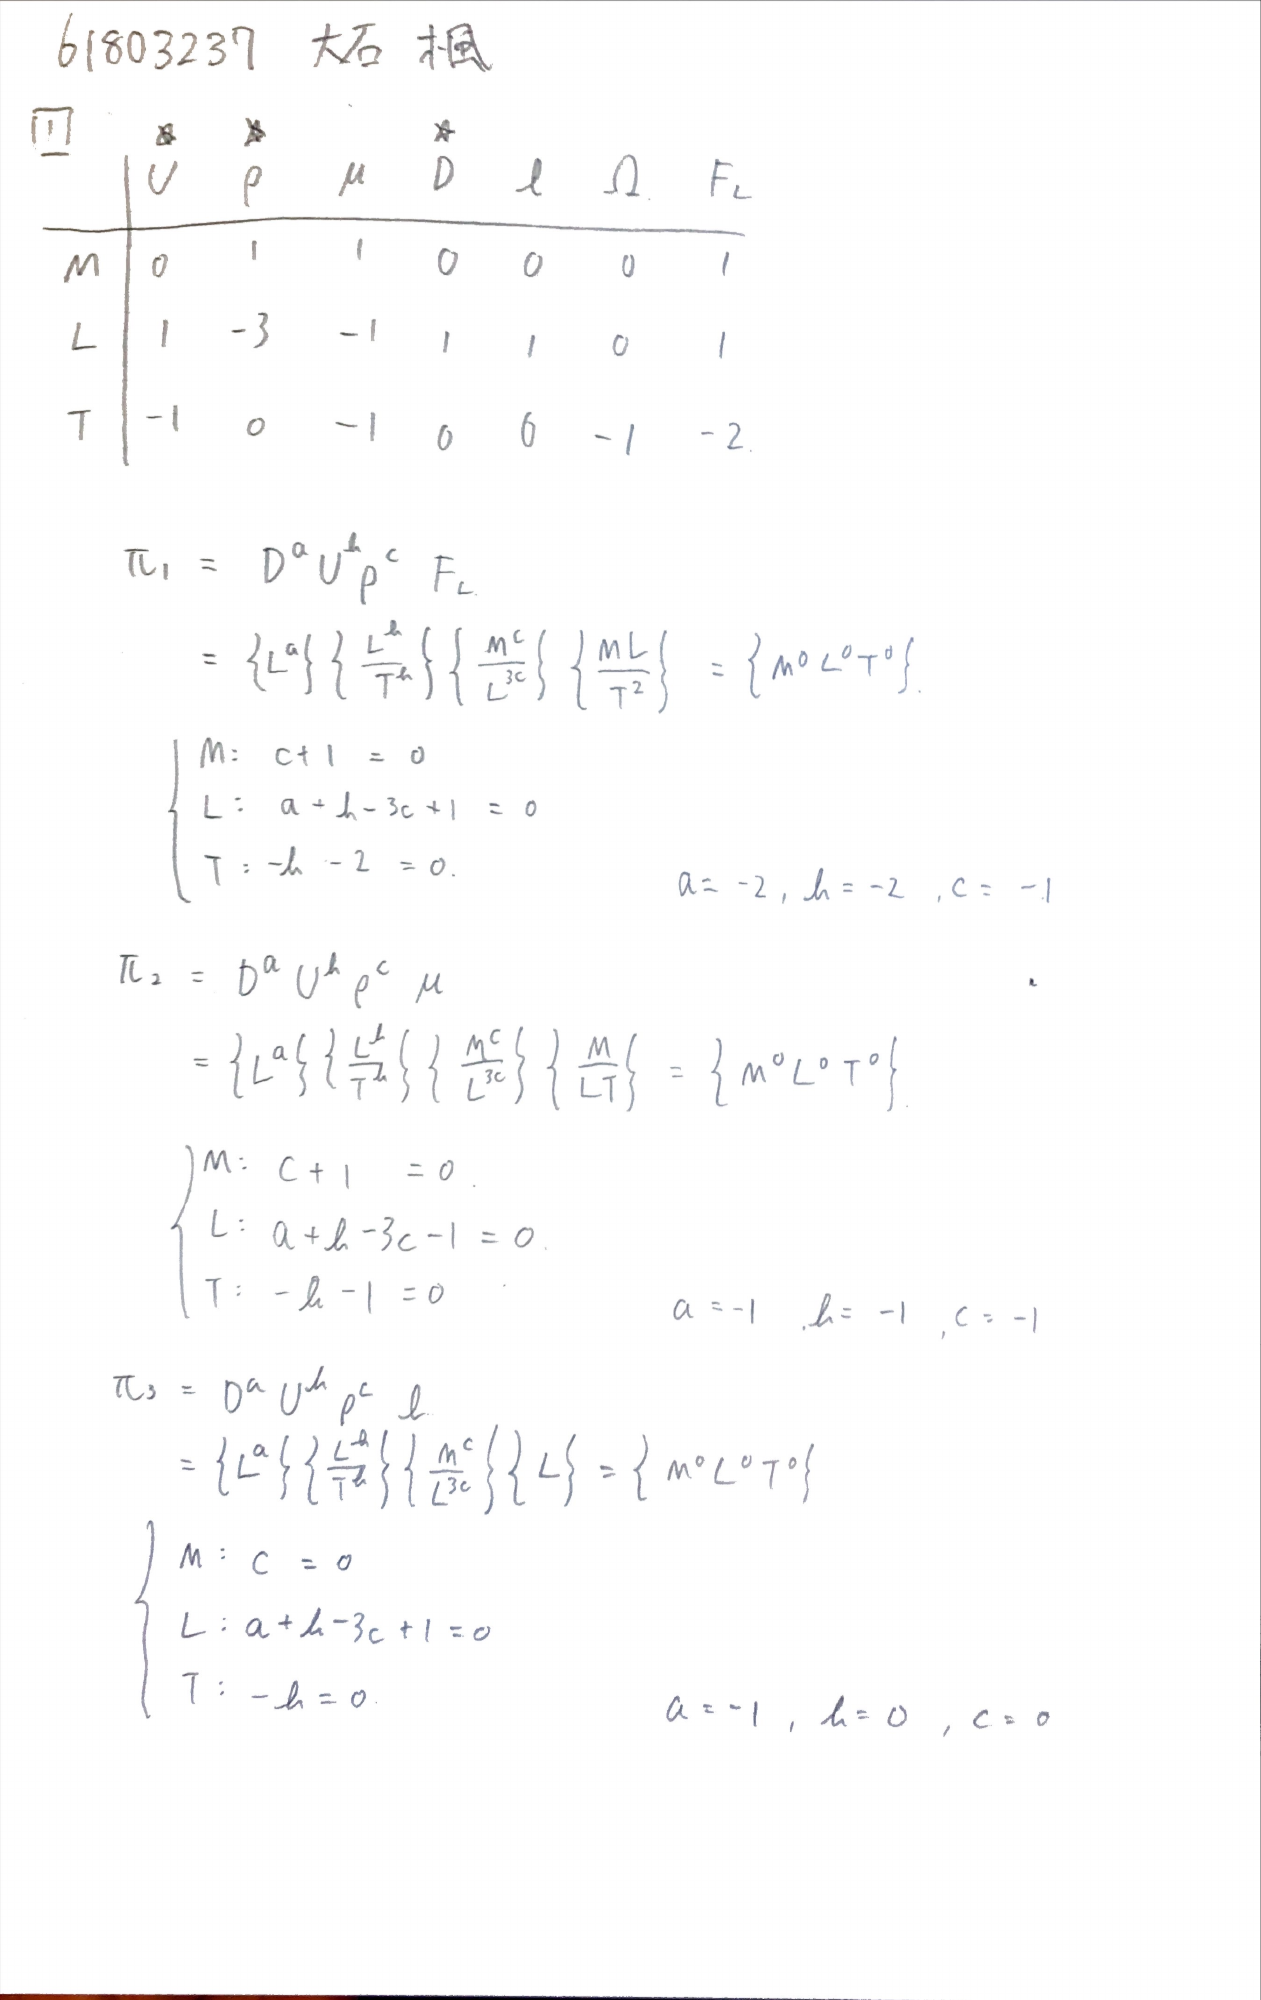 61803237 大石 楓
1
☆ ☆ ☆
U ρ μ D l Ω. F_L
M 0 1 1 0 0 0 1
L 1 -3 -1 1 1 0 1
T -1 0 -1 0 0 -1 -2.
π₁ = D^a U^h ρ^c F_L
= {L^a}{L^h/T^h}{M^c/L^3c}{ML/T²} = {M⁰L⁰T⁰}.
M: c+1 = 0
L: a+h-3c+1 = 0
T: -h-2 = 0.
a=-2, h=-2, c=-1
π₂ = D^a U^h ρ^c μ
= {L^a}{L^h/T^h}{M^c/L^3c}{M/LT} = {M⁰L⁰T⁰}.
M: c+1 = 0.
L: a+h-3c-1 = 0.
T: -h-1 = 0
a=-1, h=-1, c=-1
π₃ = D^a U^h ρ^c l
= {L^a}{L^h/T^h}{M^c/L^3c}{L} = {M⁰L⁰T⁰}
M: c = 0
L: a+h-3c+1 = 0
T: -h = 0.
a=-1, h=0, c=0